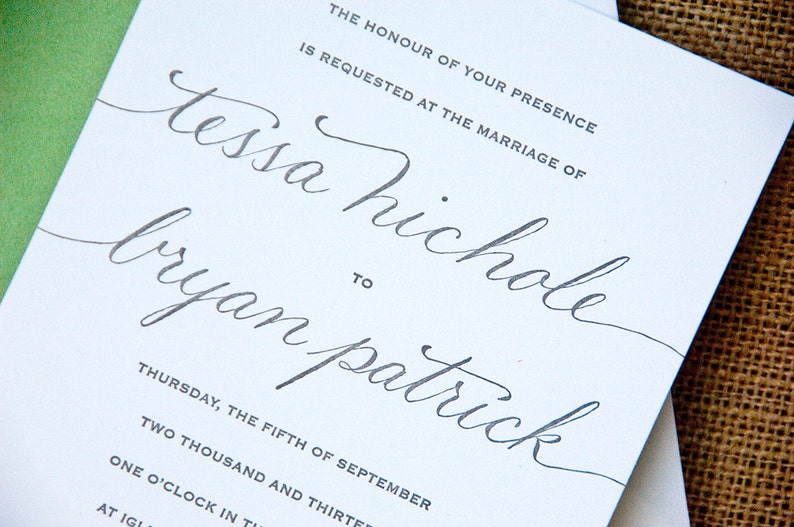 THE HONOUR OF YOUR PRESENCE
IS REQUESTED AT THE MARRIAGE OF
tessa nichole
TO
bryan patrick
THURSDAY, THE FIFTH OF SEPTEMBER
TWO THOUSAND AND THIRTEEN
ONE O'CLOCK IN THE
AT